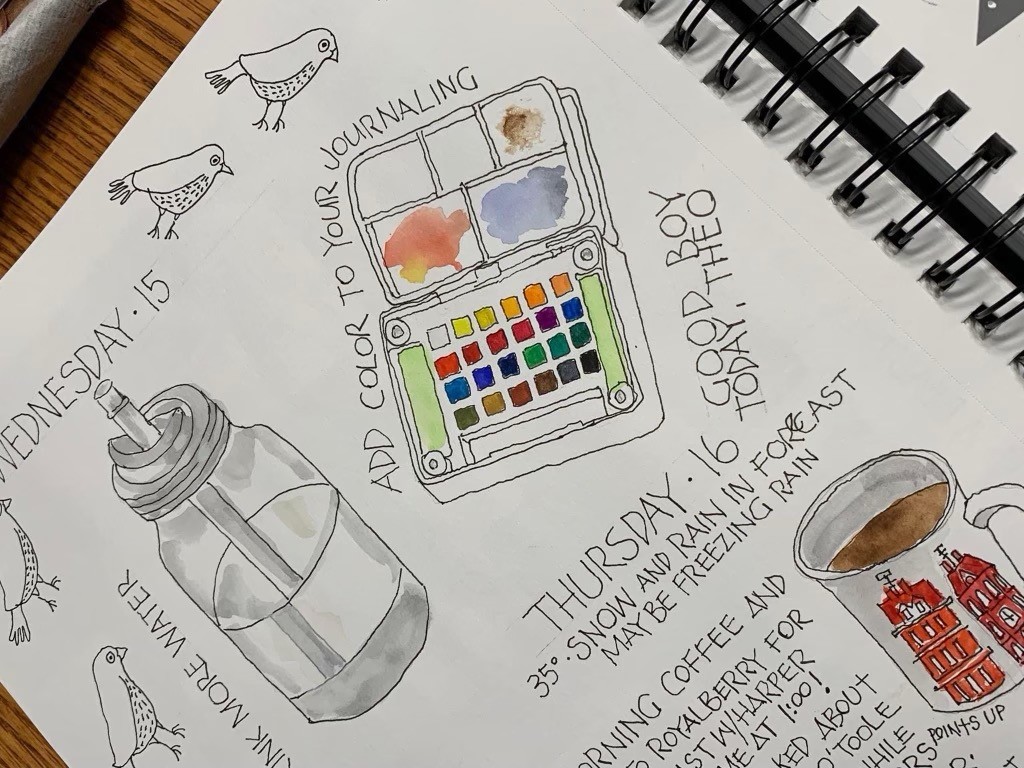 WEDNESDAY · 15
ADD COLOR TO YOUR JOURNALING
GOOD BOY
TODAY, THEO
INK MORE WATER
THURSDAY · 16
35° · SNOW AND RAIN IN FORECAST
MAY BE FREEZING RAIN
ORNING COFFEE AND
ROYALBERRY FOR
AST W/HARPER
ME AT 1:00!
KED ABOUT
O'TOOLE
HILE
ORS POINTS UP